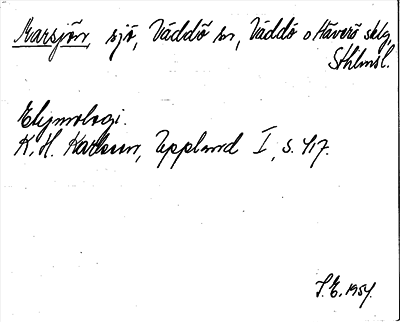 Marsjön, sjö, Väddö sn, Väddö o Häverö sklg,
Sthlmsl.
Etymologi.
K. H. Karlsson, Uppland I, s. 417.
S.E. 1954.